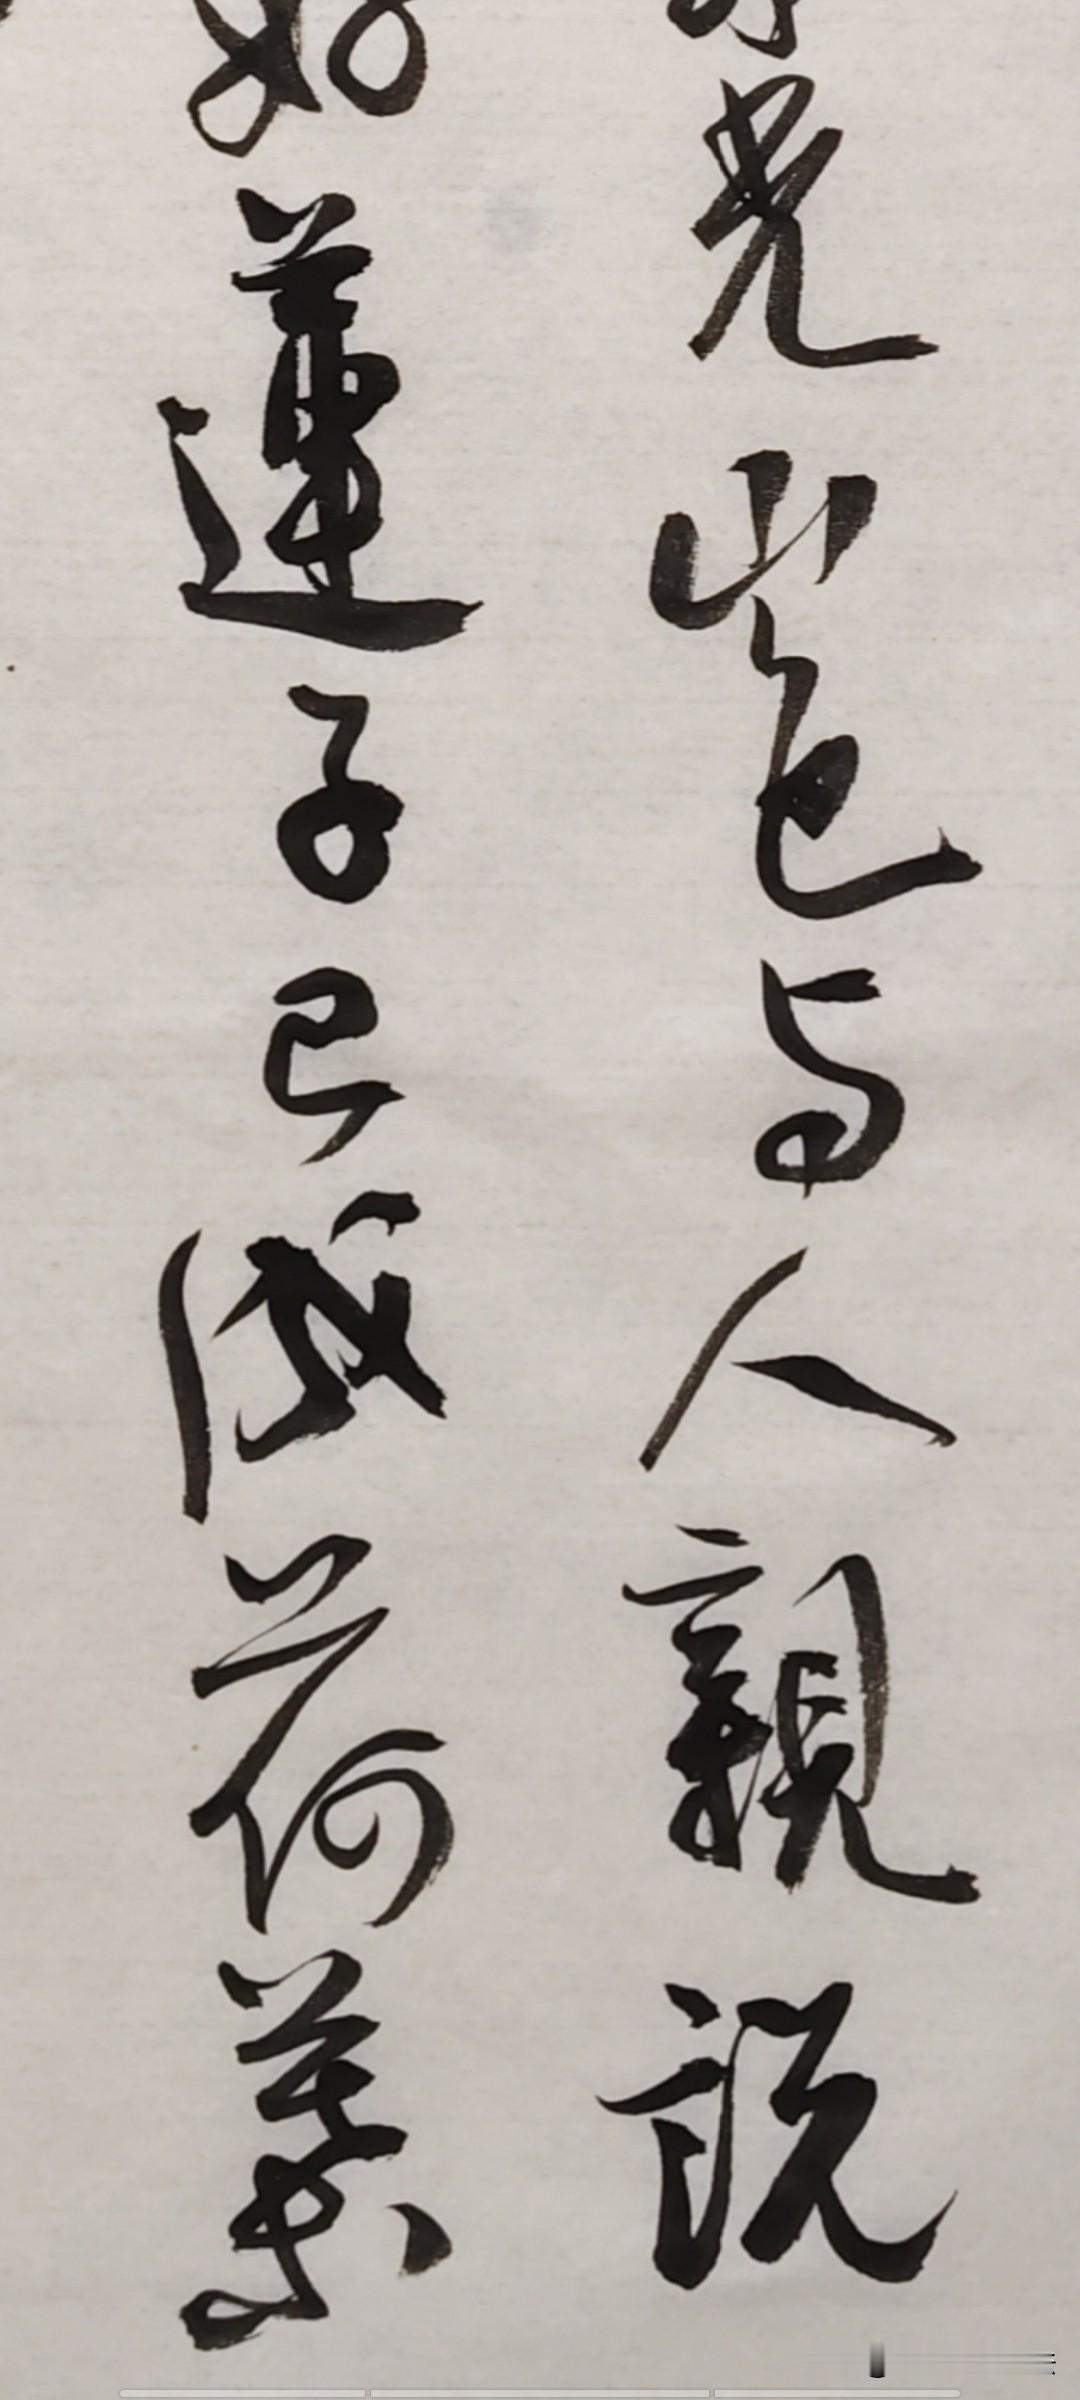 光山色与人親説
好蓮子已成荷葉